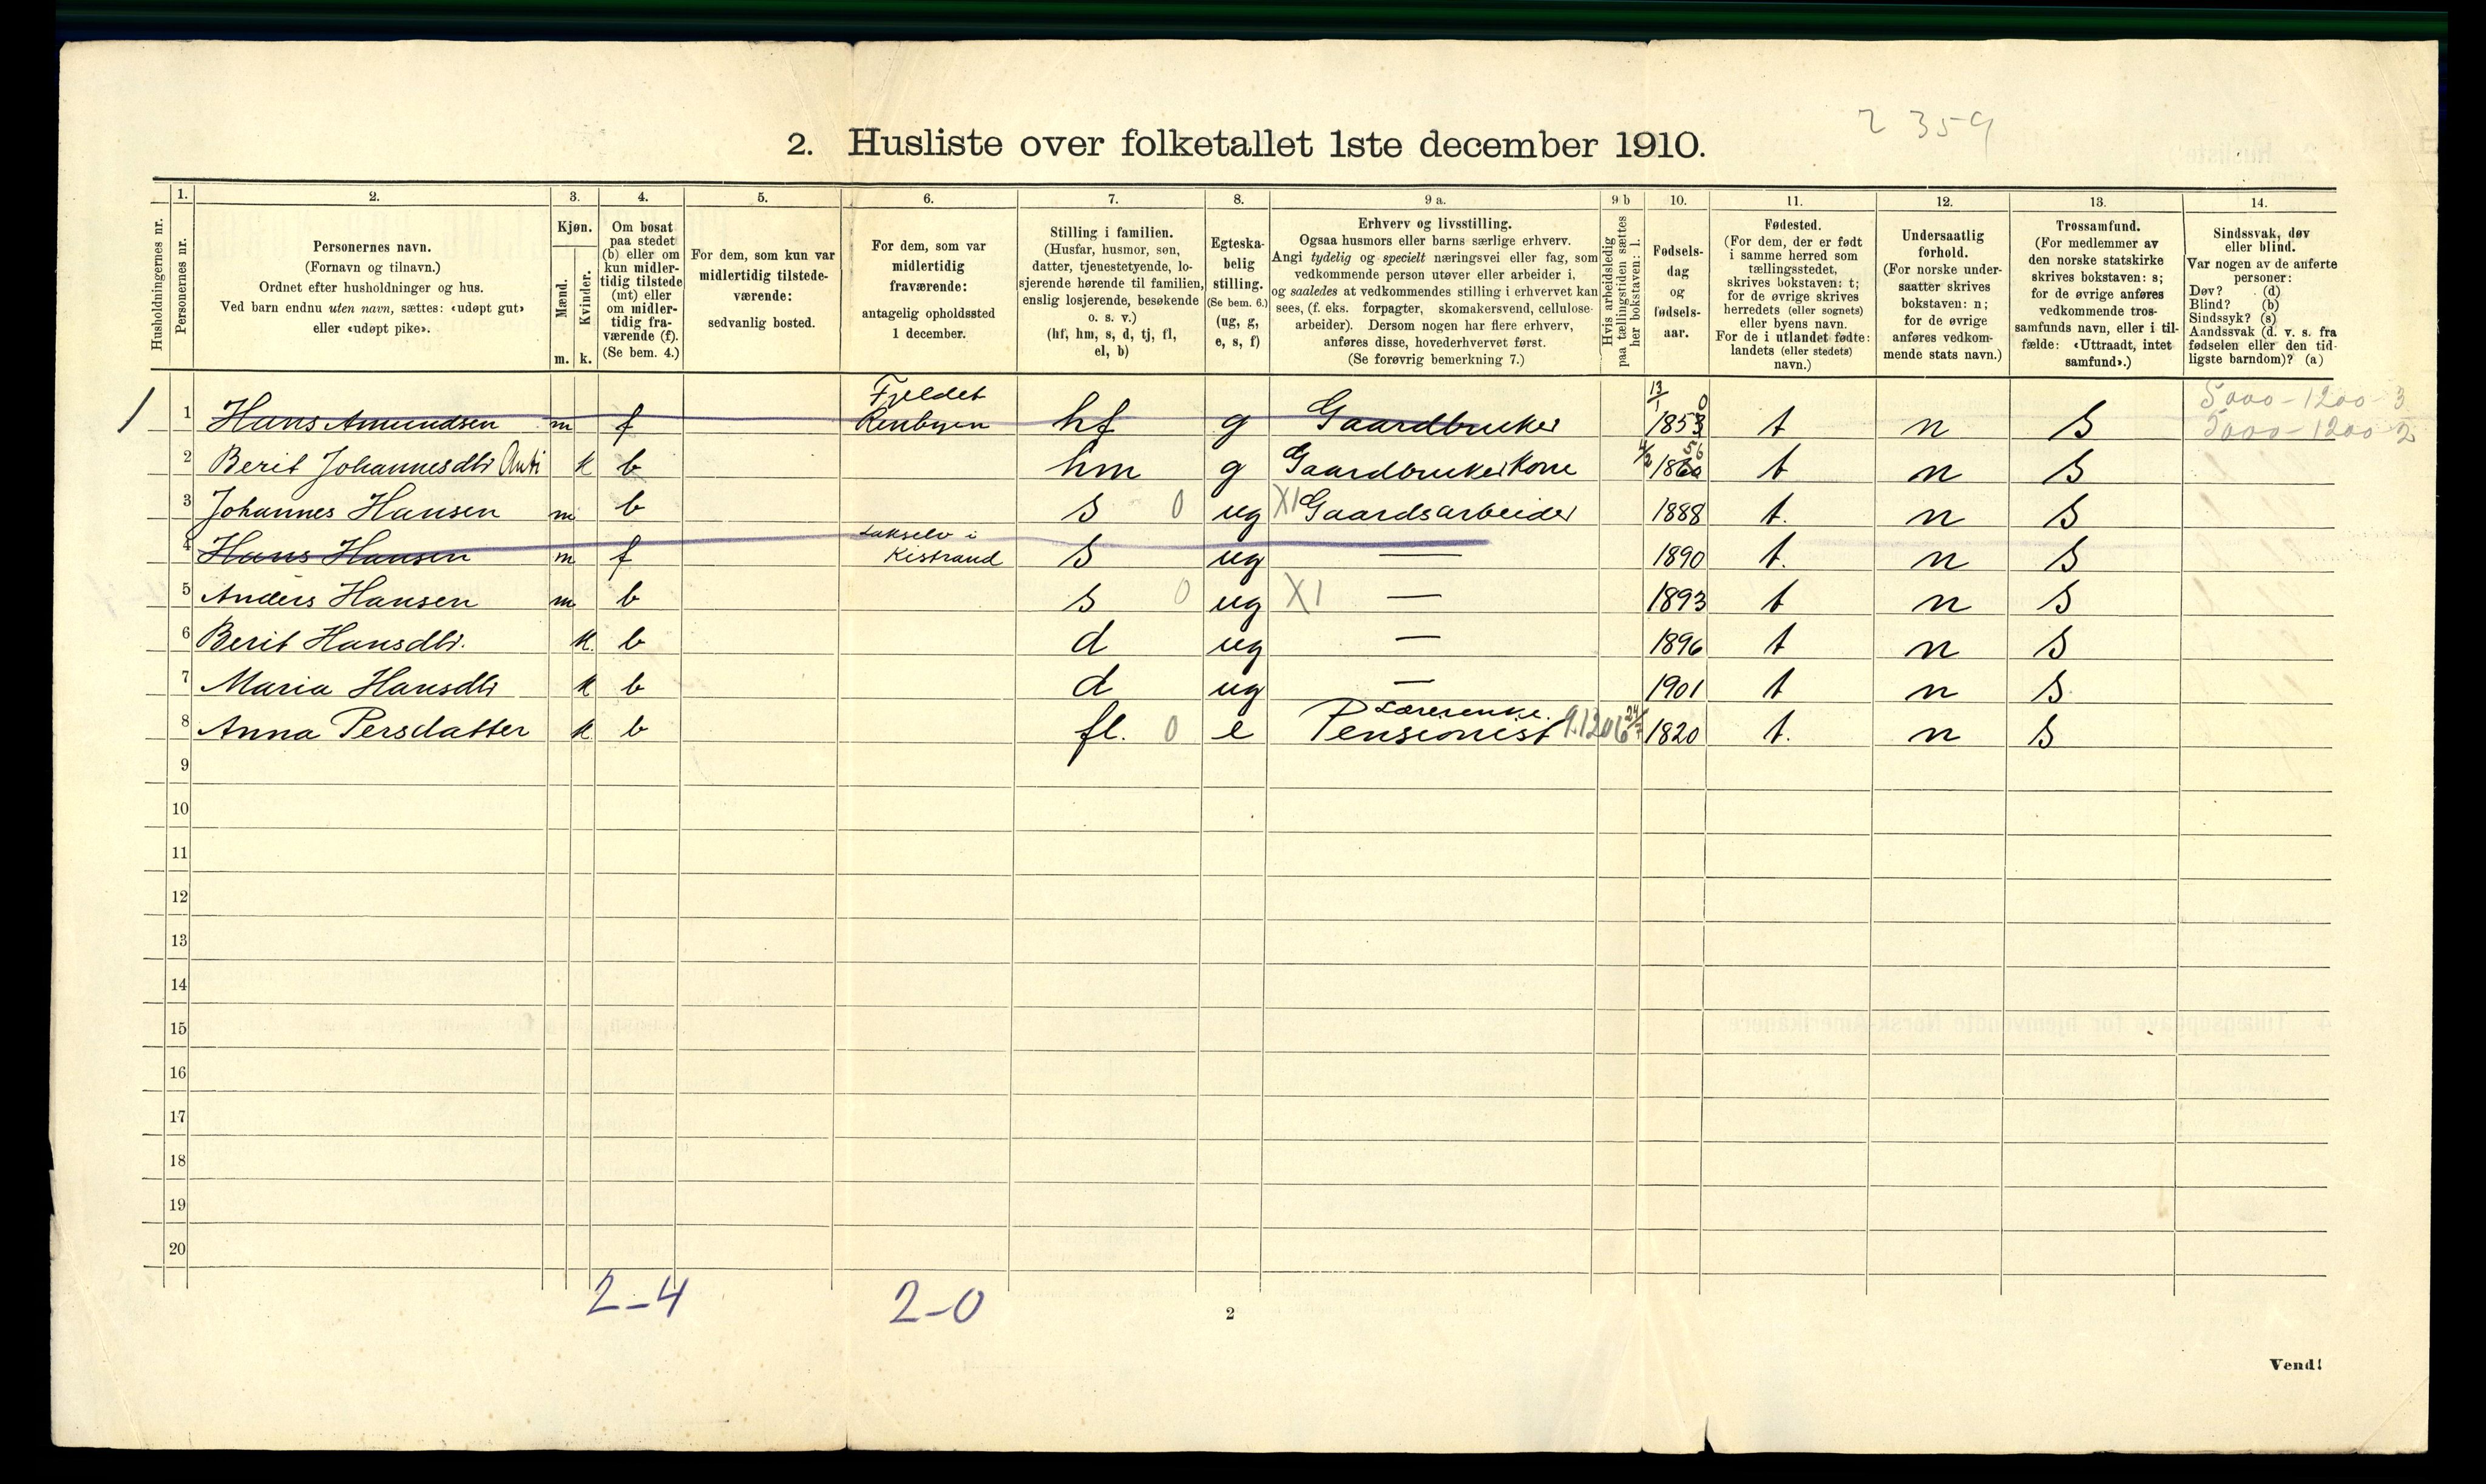 2 359
2. Husliste over folketallet 1ste december 1910.
Husholdningernes nr.
1.
Personernes nr.
2.
Personernes navn.
(Fornavn og tilnavn.)
Ordnet efter husholdninger og hus.
Ved barn endnu uten navn, sættes: «udøpt gut»
eller «udøpt pike».
3.
Kjøn.
Mænd.
Kvinder.
m. k.
4.
Om bosat
paa stedet
(b) eller om
kun midler-
tidig tilstede
(mt) eller
om midler-
tidig fra-
værende (f).
(Se bem. 4.)
5.
For dem, som kun var
midlertidig tilstede-
værende:
sedvanlig bosted.
6.
For dem, som var
midlertidig
fraværende:
antagelig opholdssted
1 december.
7.
Stilling i familien.
(Husfar, husmor, søn,
datter, tjenestetyende, lo-
sjerende hørende til familien,
enslig losjerende, besøkende
o. s. v.)
(hf, hm, s, d, tj, fl,
el, b)
8.
Egteska-
belig
stilling.
(Se bem. 6.)
(ug, g,
e, s, f)
9 a.
Erhverv og livsstilling.
Ogsaa husmors eller barns særlige erhverv.
Angi tydelig og specielt næringsvei eller fag, som
vedkommende person utøver eller arbeider i,
og saaledes at vedkommendes stilling i erhvervet kan
sees, (f. eks. forpagter, skomakersvend, cellulose-
arbeider). Dersom nogen har flere erhverv,
anføres disse, hovederhvervet først.
(Se forøvrig bemerkning 7.)
9 b
Hvis arbeidsledig
paa tællingstiden sættes
her bokstaven: l.
10.
Fødsels-
dag
og
fødsels-
aar.
11.
Fødested.
(For dem, der er født
i samme herred som
tællingsstedet,
skrives bokstaven: t;
for de øvrige skrives
herredets (eller sognets)
eller byens navn.
For de i utlandet fødte:
landets (eller stedets)
navn.)
12.
Undersaatlig
forhold.
(For norske under-
saatter skrives
bokstaven: n;
for de øvrige
anføres vedkom-
mende stats navn.)
13.
Trossamfund.
(For medlemmer av
den norske statskirke
skrives bokstaven: s;
for de øvrige anføres
vedkommende tros-
samfunds navn, eller i til-
fælde: «Uttraadt, intet
samfund».)
14.
Sindssvak, døv
eller blind.
Var nogen av de anførte
personer:
Døv? (d)
Blind? (b)
Sindssyk? (s)
Aandssvak (d. v. s. fra
fødselen eller den tid-
ligste barndom)? (a)
Fjeldet 13/1 0 5000-1200-3
1 1 Hans Amundsen m f Renbyen hf g Gaardbruker 1853 t n S 5000-1200-2
2 Berit Johannesdtr Anti k b hm g Gaardbrukerkone 4/2 1860 56 t n S
3 Johannes Hansen m b s 0 ug X1 Gaardsarbeider 1888 t. n S
Lakselv i
4 Hans Hansen m f Kistrand s ug — 1890 t. n S
5 Anders Hansen m b s 0 ug X1 — 1893 t n S
6 Berit Hansdtr. k. b d ug — 1896 t n S
7 Maria Hansdtr k b d ug — 1901 t n S
Lærerenke.
8 Anna Persdatter k b fl. 0 e Pensionist 24/7 1820 t. n S
9
10
11
12
13
14
15
16
17
18
19
20
2-4 2-0
2
Vend!